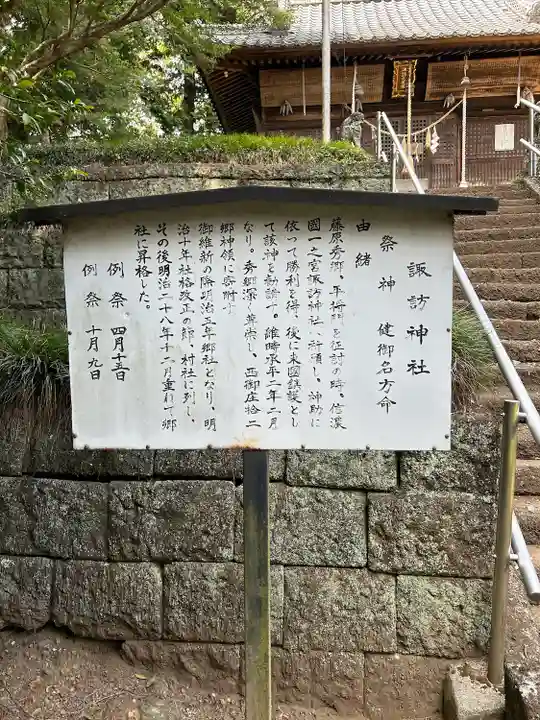 諏訪神社
祭神　健御名方命
由緒
藤原秀郷、平将門を征討の時、信濃
國一之宮諏訪神社に祈願し、神助に
依つて勝利を得、後に東國鎮護とし
て該神を勧請す。維時承平二年二月
なり。秀郷深く尊崇し、西御庄拾二
郷神領に寄附す。
御維新の際明治二年郷社となり、明
治十年社格改正の節、村社に列し、
その後明治二十八年十二月重ねて郷
社に昇格した。
例祭　四月十五日
例祭　十月九日